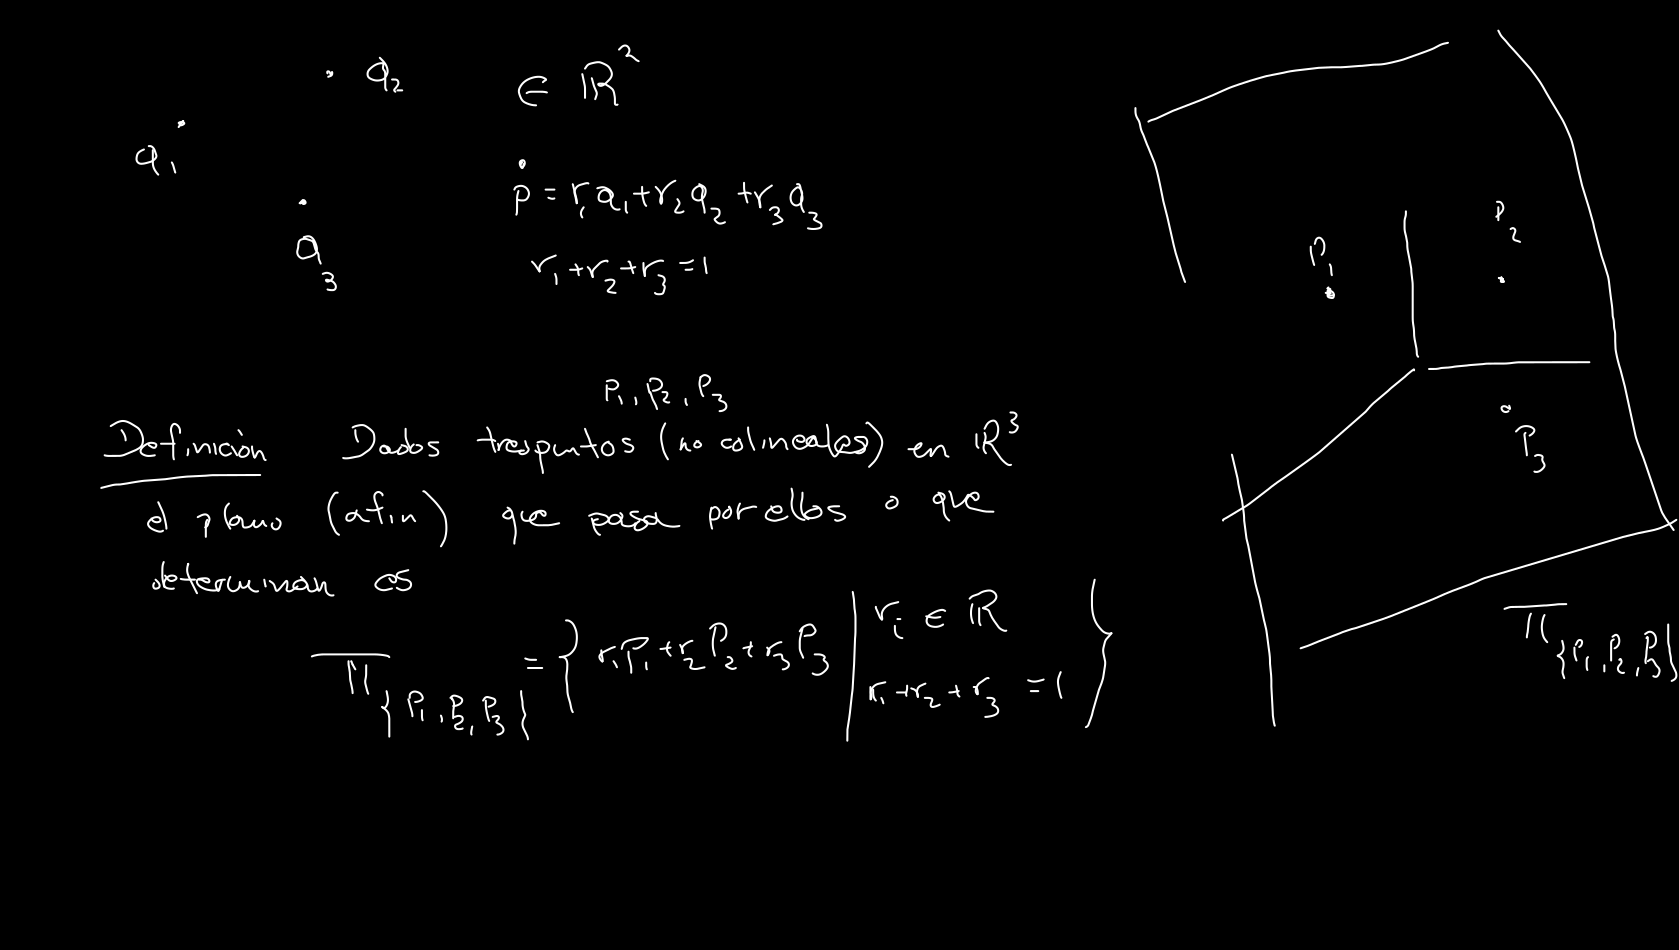 q₂ ∈ ℝ²
q₁
p = r₁q₁+r₂q₂+r₃q₃
q₃
r₁+r₂+r₃=1
P₁
P₂
P₃
P₁, P₂, P₃
Definición Dados tres puntos (no colineales) en ℝ³
el plano (afín) que pasa por ellos o que
determinan es
Π{P₁,P₂,P₃} = { r₁P₁+r₂P₂+r₃P₃ | rᵢ ∈ ℝ
r₁+r₂+r₃ = 1 }
Π{P₁,P₂,P₃}